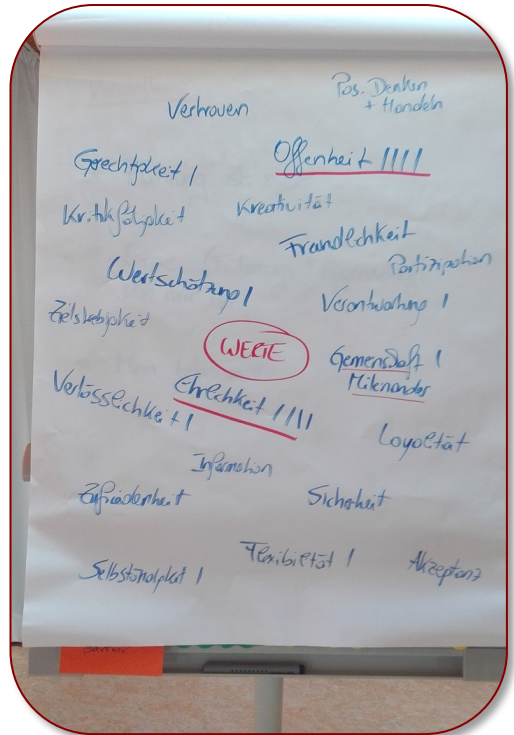 Vertrauen
Pos. Denken
+ Handeln
Gerechtigkeit I
Offenheit IIII
Kritikfähigkeit
Kreativität
Freundlichkeit
Partizipation
Wertschätzung I
Verantwortung I
Zielstrebigkeit
WERTE
Gemeinschaft I
Miteinander
Verlässlichkeit I
Ehrlichkeit IIII
Loyalität
Information
Zufriedenheit
Sicherheit
Flexibilität I
Selbständigkeit I
Akzeptanz